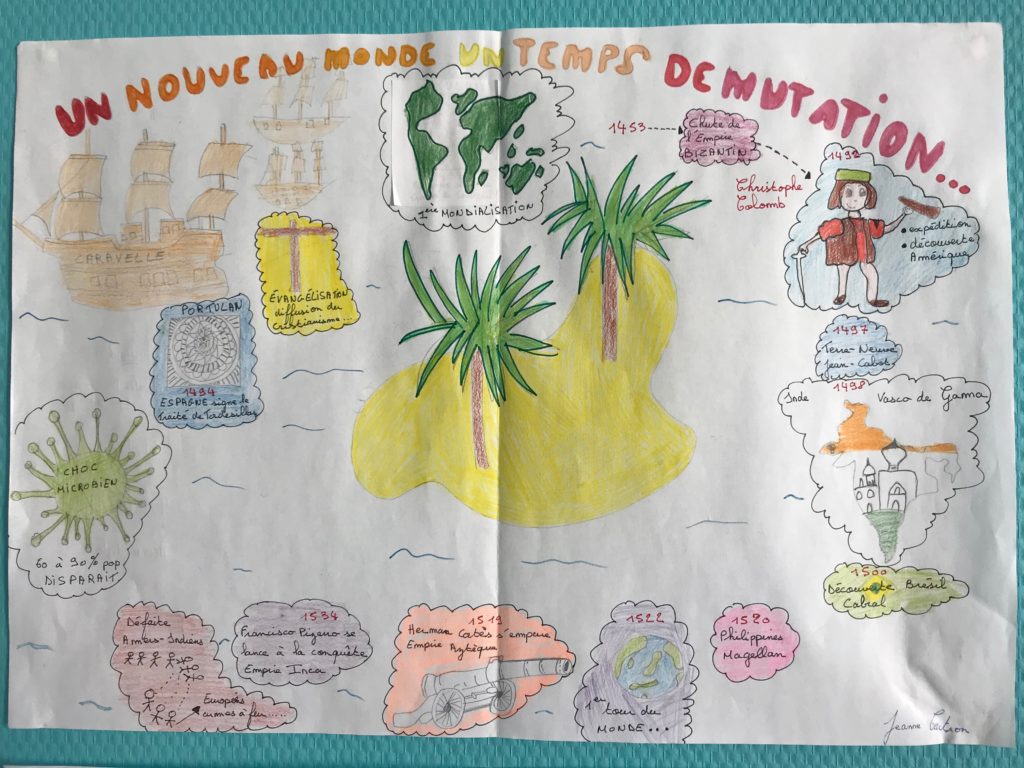 UN NOUVEAU MONDE UN TEMPS DE MUTATION...
1453
Chute de
l'Empire
BIZANTIN
1492
Christophe
Colomb
• expédition
• découverte
Amérique
1497
Terre-Neuve
Jean-Cabot
1498
Inde Vasco de Gama
1500
Découverte Brésil
Cabral
1520
Philippines
Magellan
1522
1er tour du
MONDE...
1519
Herman Cortès s'empare
Empire Aztèque
1534
Francisco Pizarro se
lance à la conquête
Empire Inca
Défaite
Amérs-Indiens
Européns
armes à feu....
CHOC
MICROBIEN
60 à 90% pop
DISPARAIT
PORTULAN
1494
ESPAGNE signe le
traité de Tordesillas
ÉVANGÉLISATION
diffusion du
cristianisme...
CARAVELLE
1ère MONDIALISATION
Jeanne